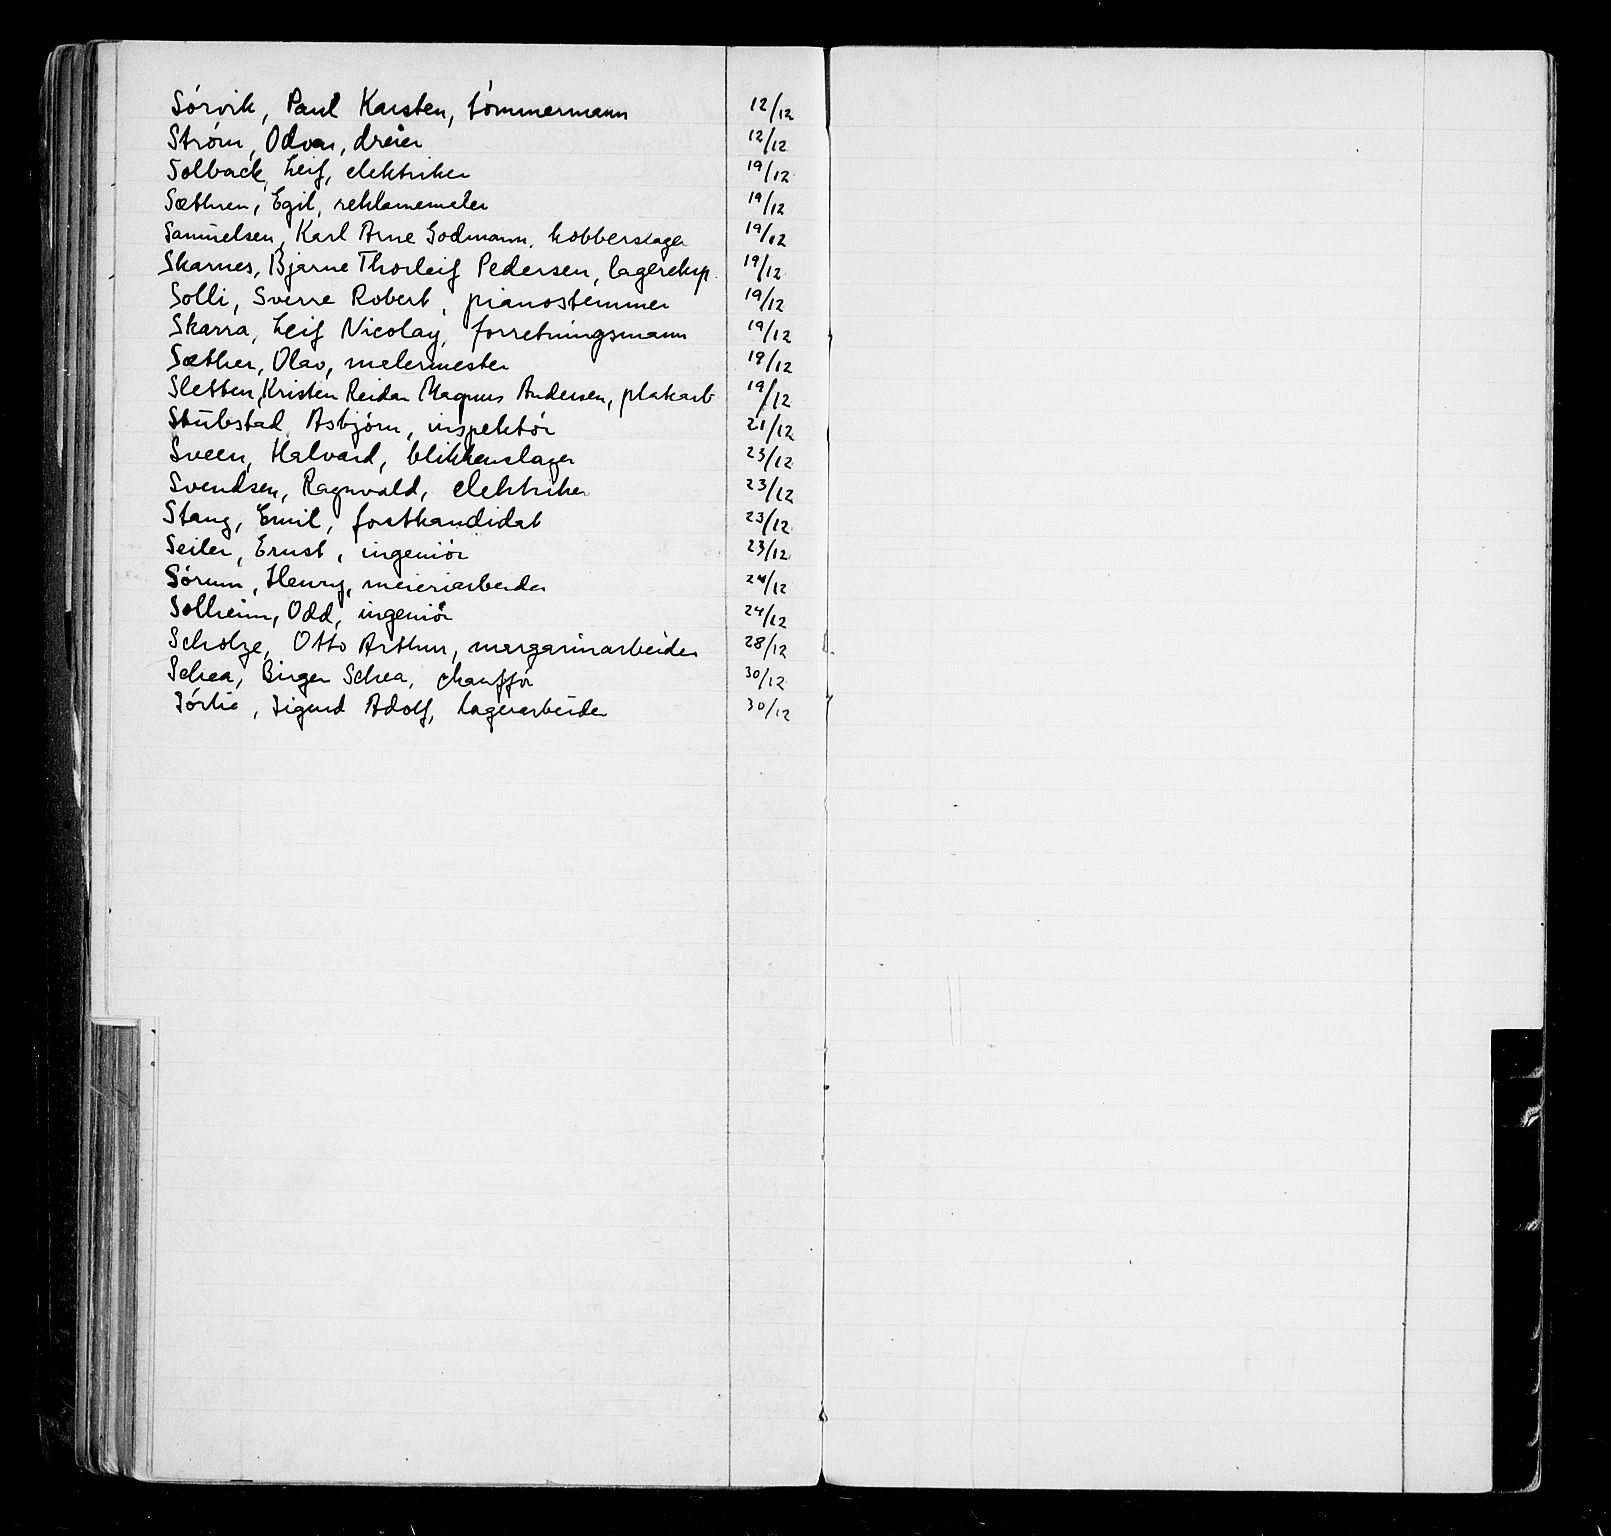 Sórvik, Paul Karsten, tómmermann 12/12
Stróm, Odvar, dreier 12/12
Solback, Leif, elektriker 19/12
Sæthren, Egil, reklamemaler 19/12
Samuelsen, Karl Arne Godmann, kobberslager 19/12
Skarnes, Bjarne Thorleif Pedersen, lagereksp. 19/12
Solli, Sverre Robert, pianostemmer 19/12
Skarra, Leif Nicolay, forretningsmann 19/12
Sæther, Olav, malermester 19/12
Sletten, Kristen Reidar Magnus Andersen, platearb 19/12
Stubstad, Asbjórn, inspektór 21/12
Sveen, Halvard, blikkenslager 23/12
Svendsen, Ragnvald, elektriker 23/12
Stang, Emil, forstkandidat 23/12
Seiler, Ernst, ingeniór 23/12
Sórum, Henry, meieriarbeider 24/12
Solheim, Odd, ingeniór 24/12
Scholze, Otto Arthur, margarinarbeider 28/12
Schea, Birger Schea, chauffór 30/12
Sórlie, Sigurd Adolf, lagerarbeider 30/12